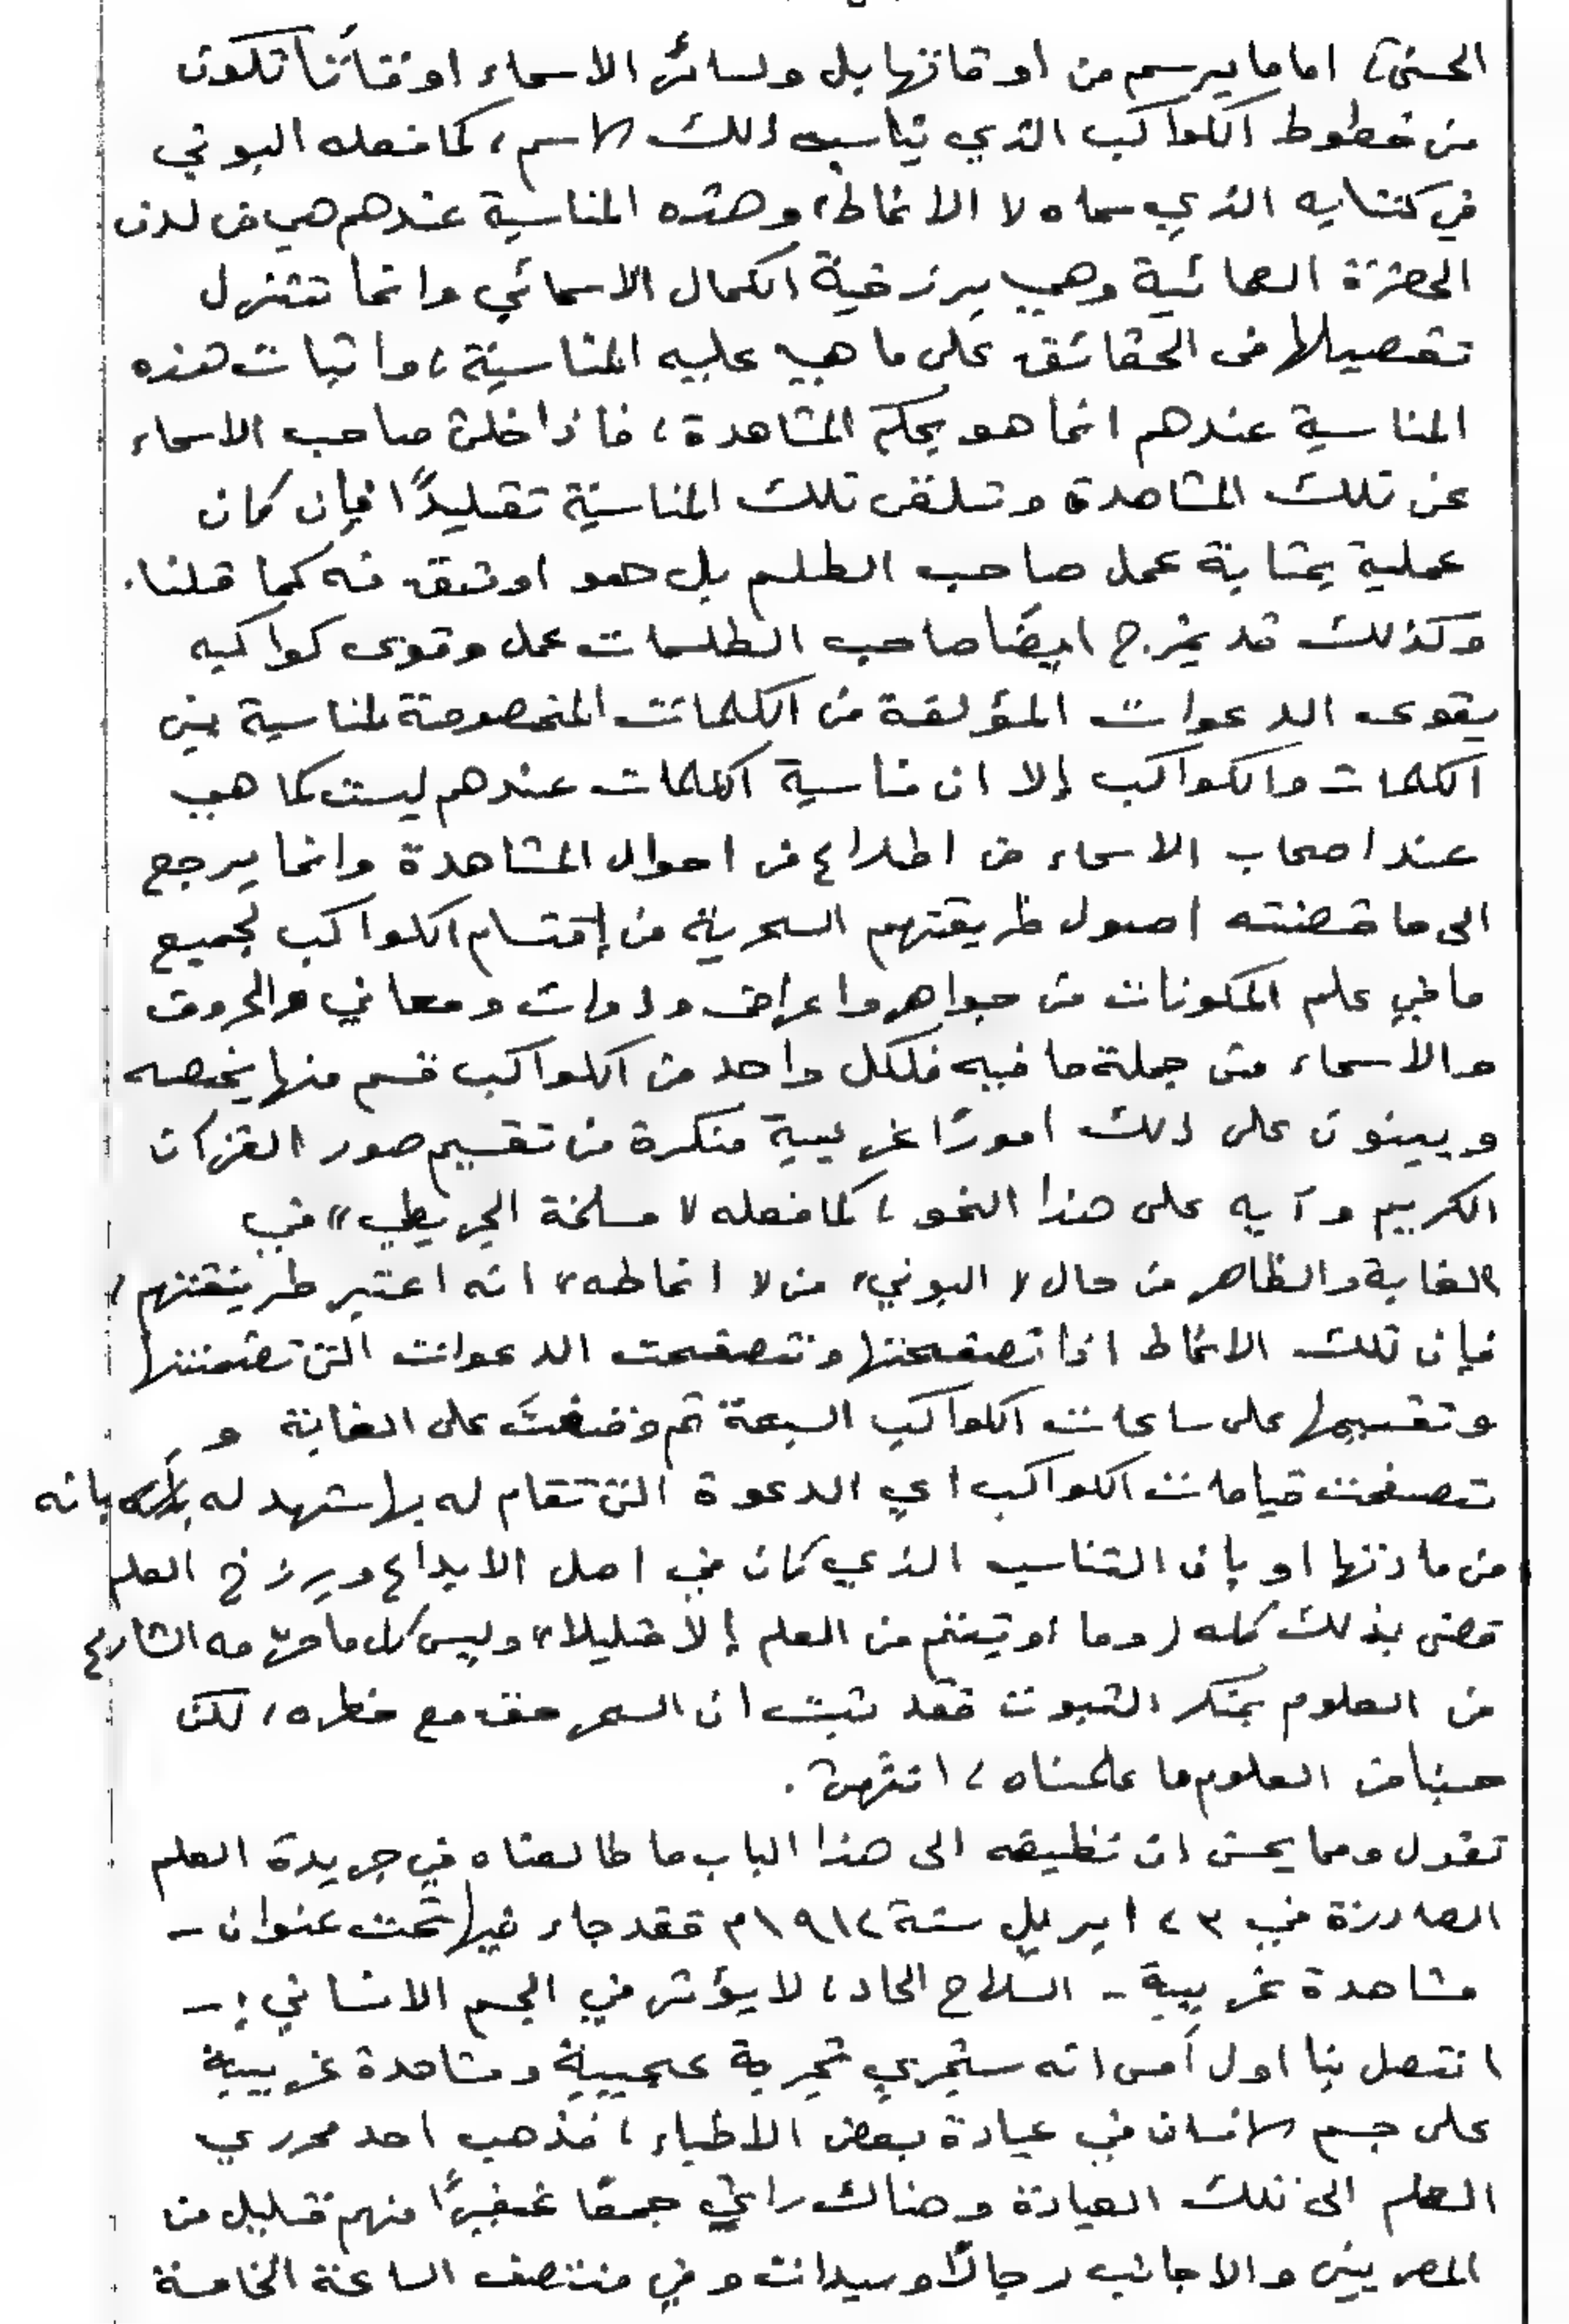 الحسنى، اما ما يرسم من اوقاتها بل ولسائر الاسماء اوقاتًا تكون
من خطوط الكواكب الذي يناسب ذلك الاسم، كما فعله البوني
في كتابه الذي سماه «الانماط، وهذه المناسبة عندهم هي من لدن
الحضرة العمائية وهي برزخية الكمال الاسمائي وانما تتنزل
تفصيلها في الحقائق على ما هي عليه المناسبة، واثبات هذه
المناسبة عندهم انما هو بحكم المشاهدة، فاذا خلى صاحب الاسماء
عن تلك المشاهدة وتلقى تلك المناسبة تقليدًا فإن كان
عملية بمثابة عمل صاحب الطلسم بل هو اوثق منه كما قلنا.
وكذلك قد يخرج ايضًا صاحب الطلسمات عمل وقوى كواكبه
بقوى الدعوات المؤلفة من الكلمات المخصوصة لمناسبة بين
الكلمات والكواكب إلا ان مناسبة الكلمات عندهم ليست كما هي
عند اصحاب الاسماء من اطلاع من احوال المشاهدة وانما يرجع
الى ما قضته اصول طريقتهم السحرية من إقتسام الكواكب لجميع
ما في علم المكونات من جواهر واعراض وذوات ومعاني والحروف
والأسماء من جملة ما فيه فلكل واحد من الكواكب قسم منها يخصه
ويبينون على ذلك امورًا غريبة منكرة من تقسيم صور القرآن
الكريم وآيه على هذا النحو، كما فعله «مسلمة الجريطي» في
الغاية والظاهر من حال «البوني» من «انماطه» انه اعتبر طريقتهم،
فإن تلك الانماط اذا تصفحتها وتصفحت الدعوات التى تضمنتها
وتقسيمها على ساعات الكواكب السبعة ثم وقفتَ على الغاية و
تصفحت قيامات الكواكب اي الدعوة التى تقام له بها شهد له بانه
من مادتها او بان التناسب الذي كان في اصل الابداع وبرزخ العلم
قضى بذلك كله (وما اوتيتم من العلم إلا قليلا» وليس كل ما حرّمه الشارع
من العلوم بمنكر الثبوت فقد ثبت ان السحر حق مع حظره، لكن
حسبنا من العلوم ما علمناه، انتهى.
نقول ومما يحسن ان نظيفه الى هذا الباب ما طالعناه في جريدة العلم
الصادرة في ٢٣ ابريل سنة ١٩١٢م فقد جاء فيها تحت عنوان -
مشاهدة غريبة - السلاح الحاد، لا يؤثر في الجسم الانساني: -
اتصل بنا اول أمس انه ستجري تجربة عجيبة ومشاهدة غريبة
على جسم الانسان في عيادة بعض الاطباء، فذهب احد محرري
العلم الى تلك العيادة وهناك راى جمعًا غفيرًا منهم قليل من
المصريين والاجانب رجالًا وسيدات وفي منتصف الساعة الخامسة